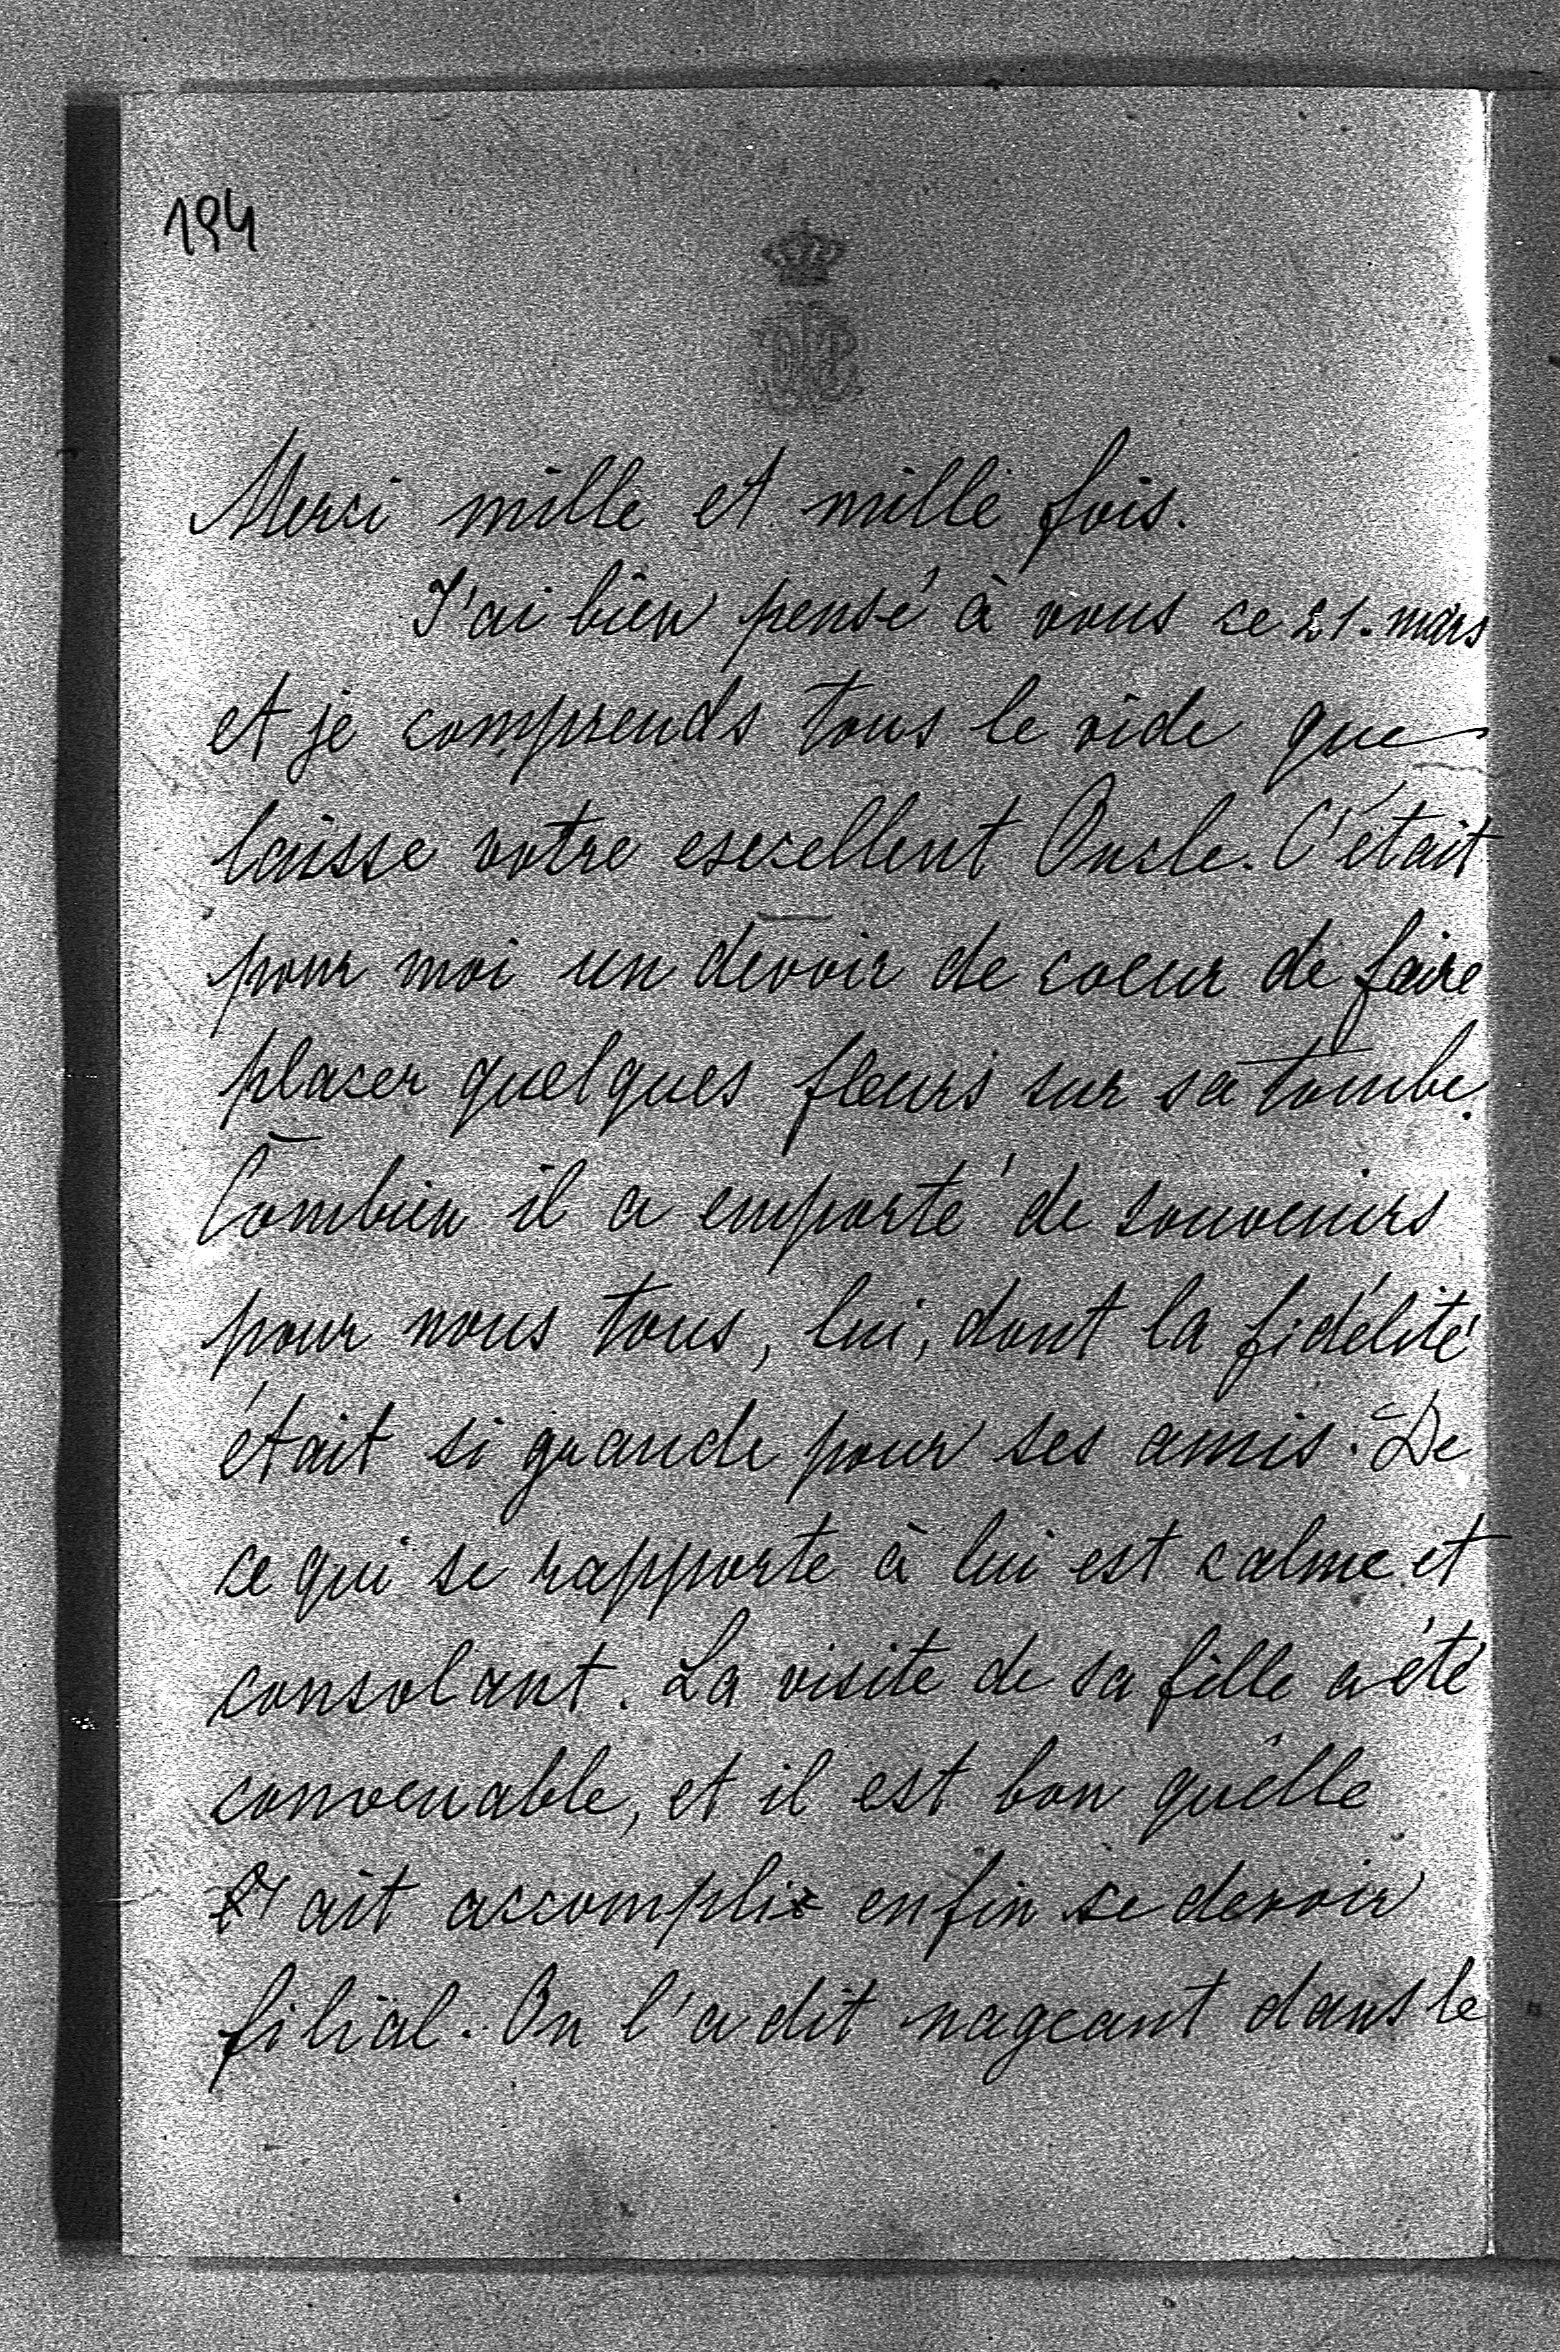 194
Merci mille et mille fois.
J'ai bien pensé à vous ce 21. mars
et je comprends tous le vide que
laisse votre excellent Oncle. C'était
pour moi un devoir de coeur de faire
placer quelques fleurs sur sa tombe.
Combien il a emporté de souvenirs
pour nous tous, lui, dont la fidélité
était si grande pour ses amis. De
ce qui se rapporte à lui est calme et
consolant. La visite de sa fille a été
convenable, et il est bon qu'elle
ait accompli enfin ce devoir
filial. On l'a dit nageant dans le